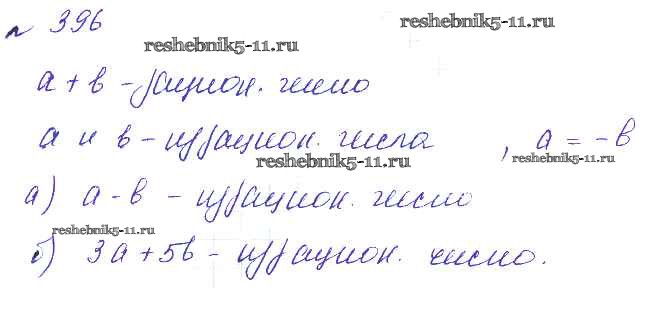 № 396
reshebnik5-11.ru
reshebnik5-11.ru
a + b – рацион. число
a и b – иррацион. числа, a = –b
reshebnik5-11.ru
reshebnik5-11.ru
а) a - b – иррацион. число
reshebnik5-11.ru
б) 3a + 5b – иррацион. число.